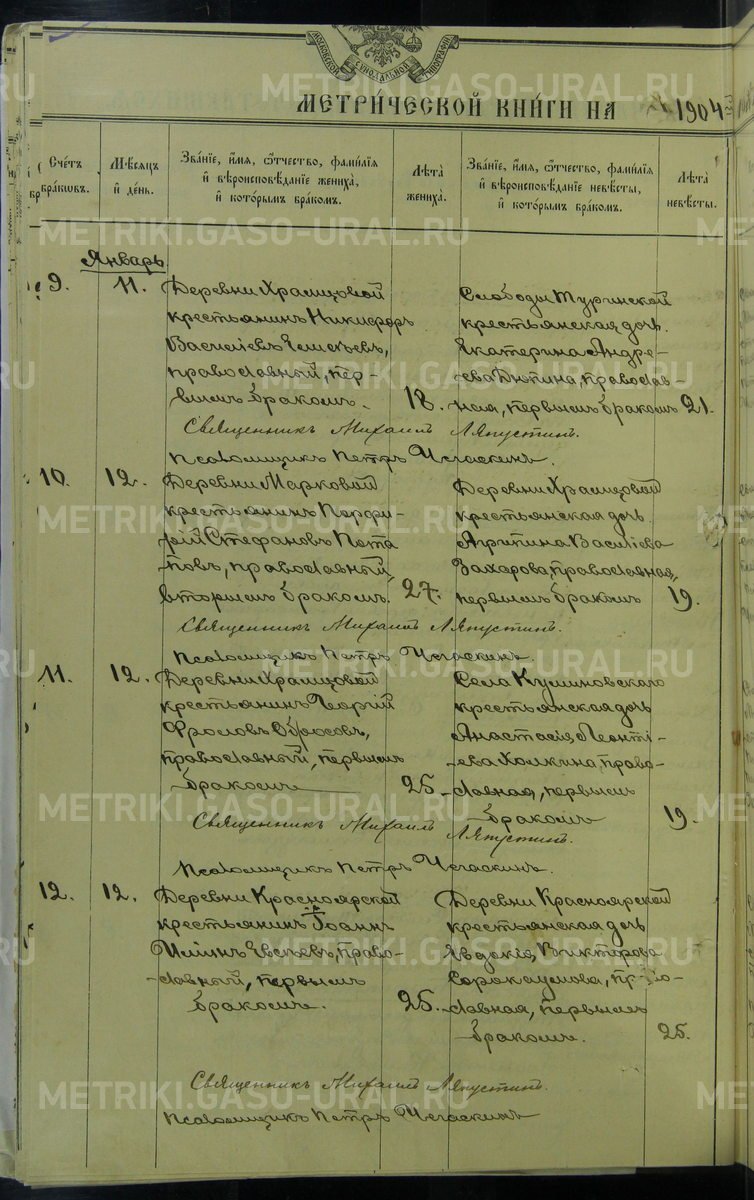 МОСКОВСКОЙ СѴНОДАЛЬНОЙ ТИПОГРАФІИ
МЕТРИ́ЧЕСКОЙ КНИ́ГИ НА 1904
Сче́тъ бра́кѡвъ.
Мѣ́сяцъ и҆ де́нь.
Зва́нїе, и҆́мя, ѻ҆́тчество, фами́лїя и҆ вѣроисповѣ́данїе жениха̀, и҆ кото́рымъ бра́комъ.
Лѣ́та жениха̀.
Зва́нїе, и҆́мя, ѻ҆́тчество, фами́лїя и҆ вѣроисповѣ́данїе невѣ́сты, и҆ кото́рымъ бра́комъ.
Лѣ́та невѣ́сты.
Январь
9.
11.
Деревни Храмцовой
крестьянинъ Никифоръ
Василіевъ
православный, пер-
вымъ бракомъ.
18.
Слободы Туринской
крестьянская дочь.
Екатерина Андре-
ева Дюпина, православ-
ная, первымъ бракомъ
21.
Священникъ Михаилъ Ляпустинъ.
Псаломщикъ Петръ
10.
12.
Деревни Марковой
крестьянинъ Порфи-
рій Стефановъ Пота
повъ, православный,
вторымъ бракомъ.
27.
Деревни Храмцовой
крестьянская дочь
Агрипина Василіева
Захарова, православная,
первымъ бракомъ
19.
Священникъ Михаилъ Ляпустинъ.
Псаломщикъ Петръ
11.
12.
Деревни Храмцовой
крестьянинъ Георгій
Фроловъ Обросовъ,
православный, первымъ
бракомъ
25.
Села Кушиновскаго
крестьянская дочь
Анастасія Леонті-
ева Холкина, право-
славная, первымъ
бракомъ
19.
Священникъ Михаилъ Ляпустинъ.
Псаломщикъ Петръ
12.
12.
Деревни Красноярской
крестьянинъ Іоаннъ
Илиинъ Евсѣевъ, право-
славный, первымъ
бракомъ.
25.
Деревни Красноярской
крестьянская дочь
Евдокія Викторова
Сорокаумова, право-
славная, первымъ
бракомъ.
25.
Священникъ Михаилъ Ляпустинъ.
Псаломщикъ Петръ
METRIKI.GASO-URAL.RU